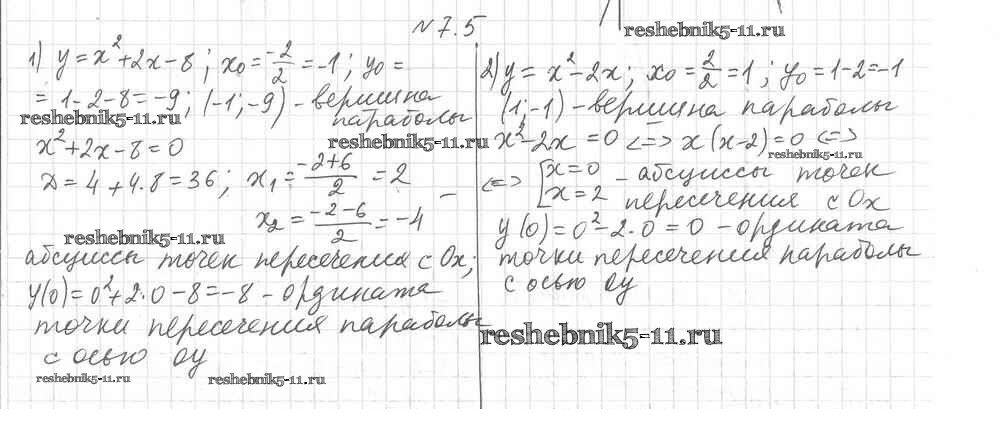 N 7.5
reshebnik5-11.ru
1) y = x² + 2x - 8; x₀ = -2/2 = -1; y₀ =
= 1 - 2 - 8 = -9; (-1; -9) - вершина
параболы
reshebnik5-11.ru
x² + 2x - 8 = 0
reshebnik5-11.ru
D = 4 + 4·8 = 36; x₁ = (-2+6)/2 = 2
x₂ = (-2-6)/2 = -4 -
reshebnik5-11.ru
абсциссы точек пересечения с Ox;
y(0) = 0² + 2·0 - 8 = -8 - ордината
точки пересечения параболы
с осью Oy
reshebnik5-11.ru
reshebnik5-11.ru
2) y = x² - 2x; x₀ = 2/2 = 1; y₀ = 1 - 2 = -1
(1; -1) - вершина параболы
x² - 2x = 0 <=> x(x-2) = 0 <=>
reshebnik5-11.ru
<=> [x = 0 - абсциссы точек
x = 2 пересечения с Ox
y(0) = 0² - 2·0 = 0 - ордината
точки пересечения параболы
с осью Oy
reshebnik5-11.ru